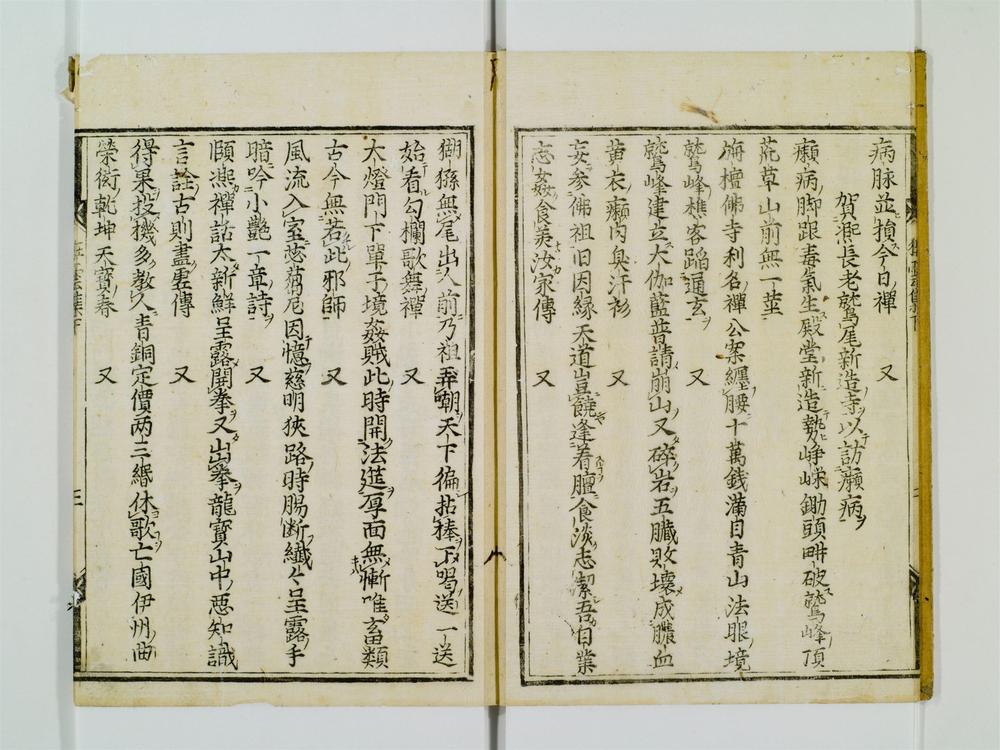 病脉並損今日禪　又
賀㷩長老鷲尾新造寺以訪癩病
癩病脚跟毒氣生殿堂新造勢崢嶸鋤頭畊破鷲峰頂
荒草山前無一莖
栴檀佛寺利名禪公案纏腰十萬錢滿目青山法眼境
鷲峰樵客蹈通玄　又
鷲峰建立大伽藍普請崩山又碎岩五臓敗壊成膿血
黄衣癩肉臭汗衫　又
妄参佛祖旧因縁天道豈饒逢着膻食淡志潔吾自業
志姦食美汝家傳　又
猢猻無尾出人前乃祖弄嘲天下徧拈棒下喝送一送
始看勾欄歌舞禪　又
大燈門下單于境姦賊此時開法莚厚面無慚唯畜類
古今無若此邪師　又
風流入室苾蒭尼因憶慈明狹路時腸断纎々呈露手
暗吟小艶一章詩　又
頤㷩禪話太新鮮呈露開拳又出拳龍寳山中悪知識
言詮古則盡虚傳　又
得果投機多教人青銅定價两三緡休歌亡國伊州曲
榮衒乾坤天寳春　又